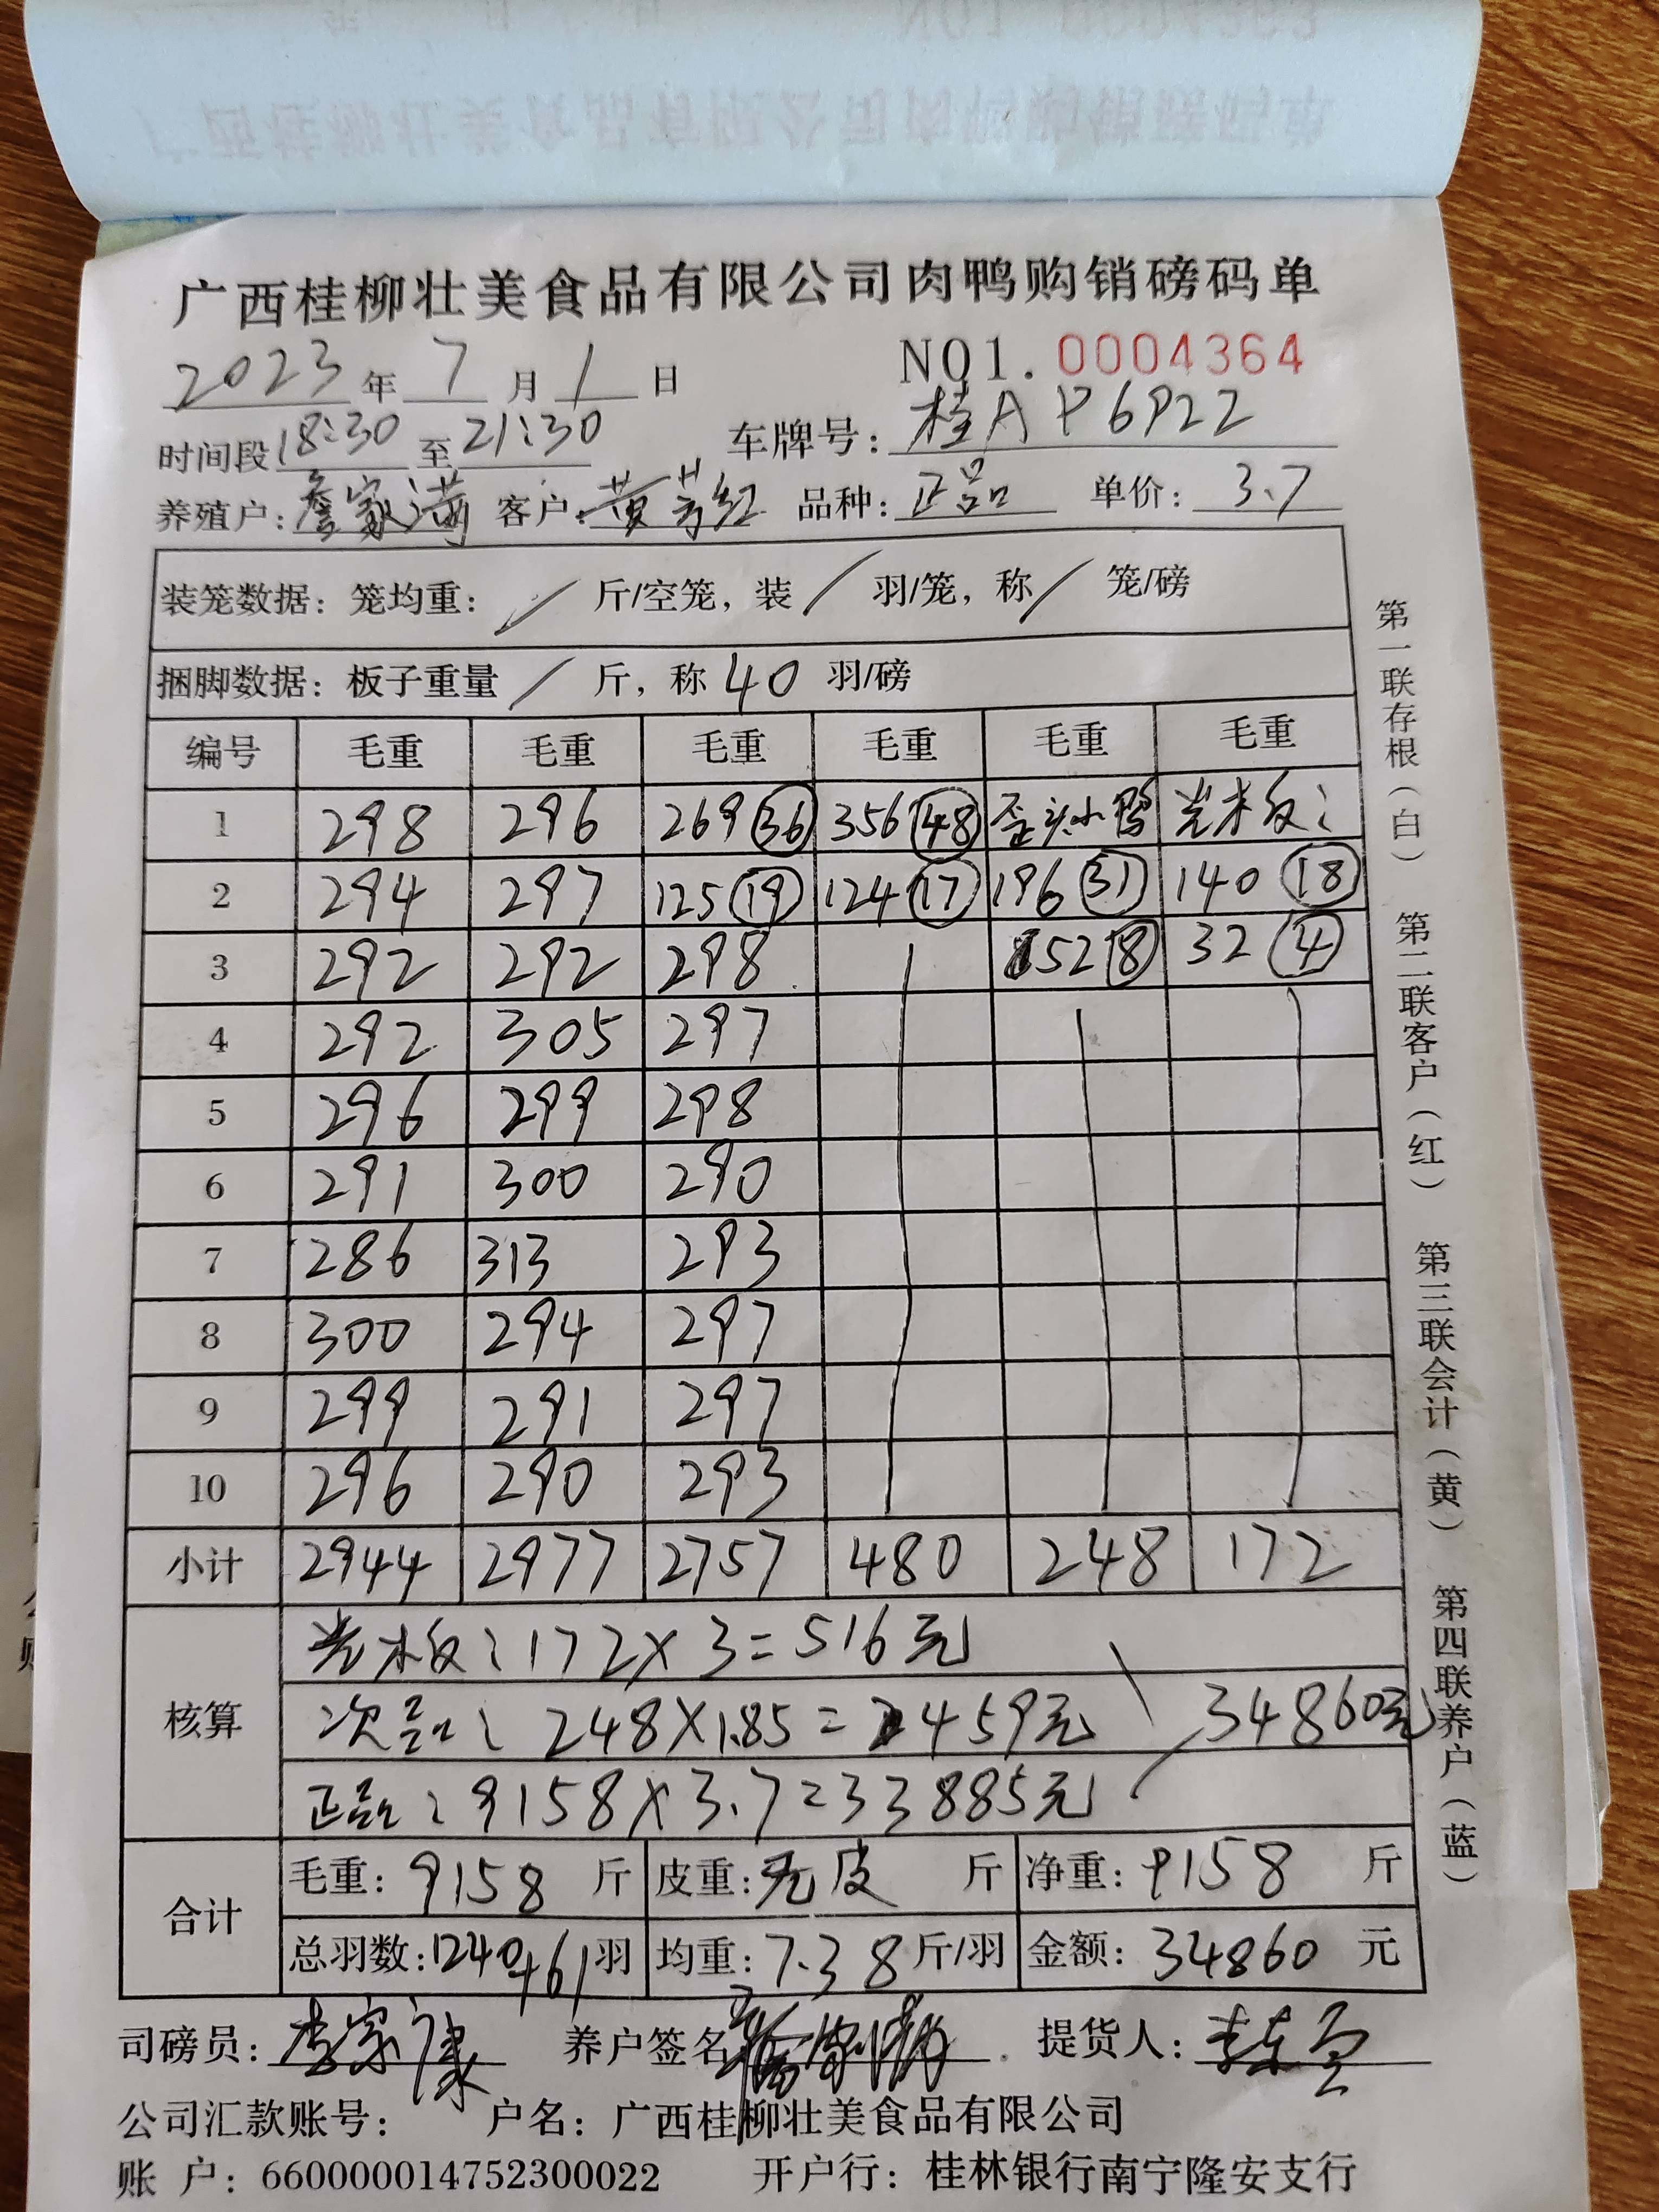 广西桂柳壮美食品有限公司肉鸭购销磅码单
NO1. 0004364
2023 年 7 月 1 日
时间段 18:30 至 21:30 车牌号: 桂A P6P22
养殖户: 詹家满 客户: 黄芳红 品种: 正品 单价: 3.7
装笼数据: 笼均重: / 斤/空笼, 装 / 羽/笼, 称 / 笼/磅
捆脚数据: 板子重量 / 斤, 称 40 羽/磅
编号 毛重 毛重 毛重 毛重 毛重 毛重
1 298 296 269 36 356 48 歪头小鸭 光木板:
2 294 297 125 19 124 17 196 31 140 18
3 292 292 298 52 8 32 4
4 292 305 297
5 296 299 298
6 291 300 290
7 286 313 293
8 300 294 297
9 299 291 297
10 296 290 293
小计 2944 2977 2757 480 248 172
核算
光木板: 172×3=516元
次品: 248×1.85=459元 34860元
正品: 9158×3.7=33885元
合计
毛重: 9158 斤 皮重: 无皮 斤 净重: 9158 斤
总羽数: 1240+61 羽 均重: 7.38 斤/羽 金额: 34860 元
司磅员: 李家 养户签名 提货人:
公司汇款账号: 户名: 广西桂柳壮美食品有限公司
账 户: 660000014752300022 开户行: 桂林银行南宁隆安支行
第一联存根(白) 第二联客户(红) 第三联会计(黄) 第四联养户(蓝)